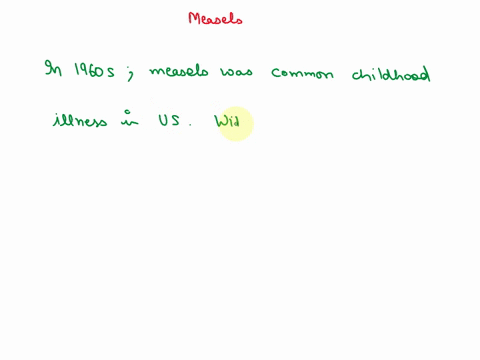 Measels
In 1960s ; measels was common childhood
illness in US. Wid